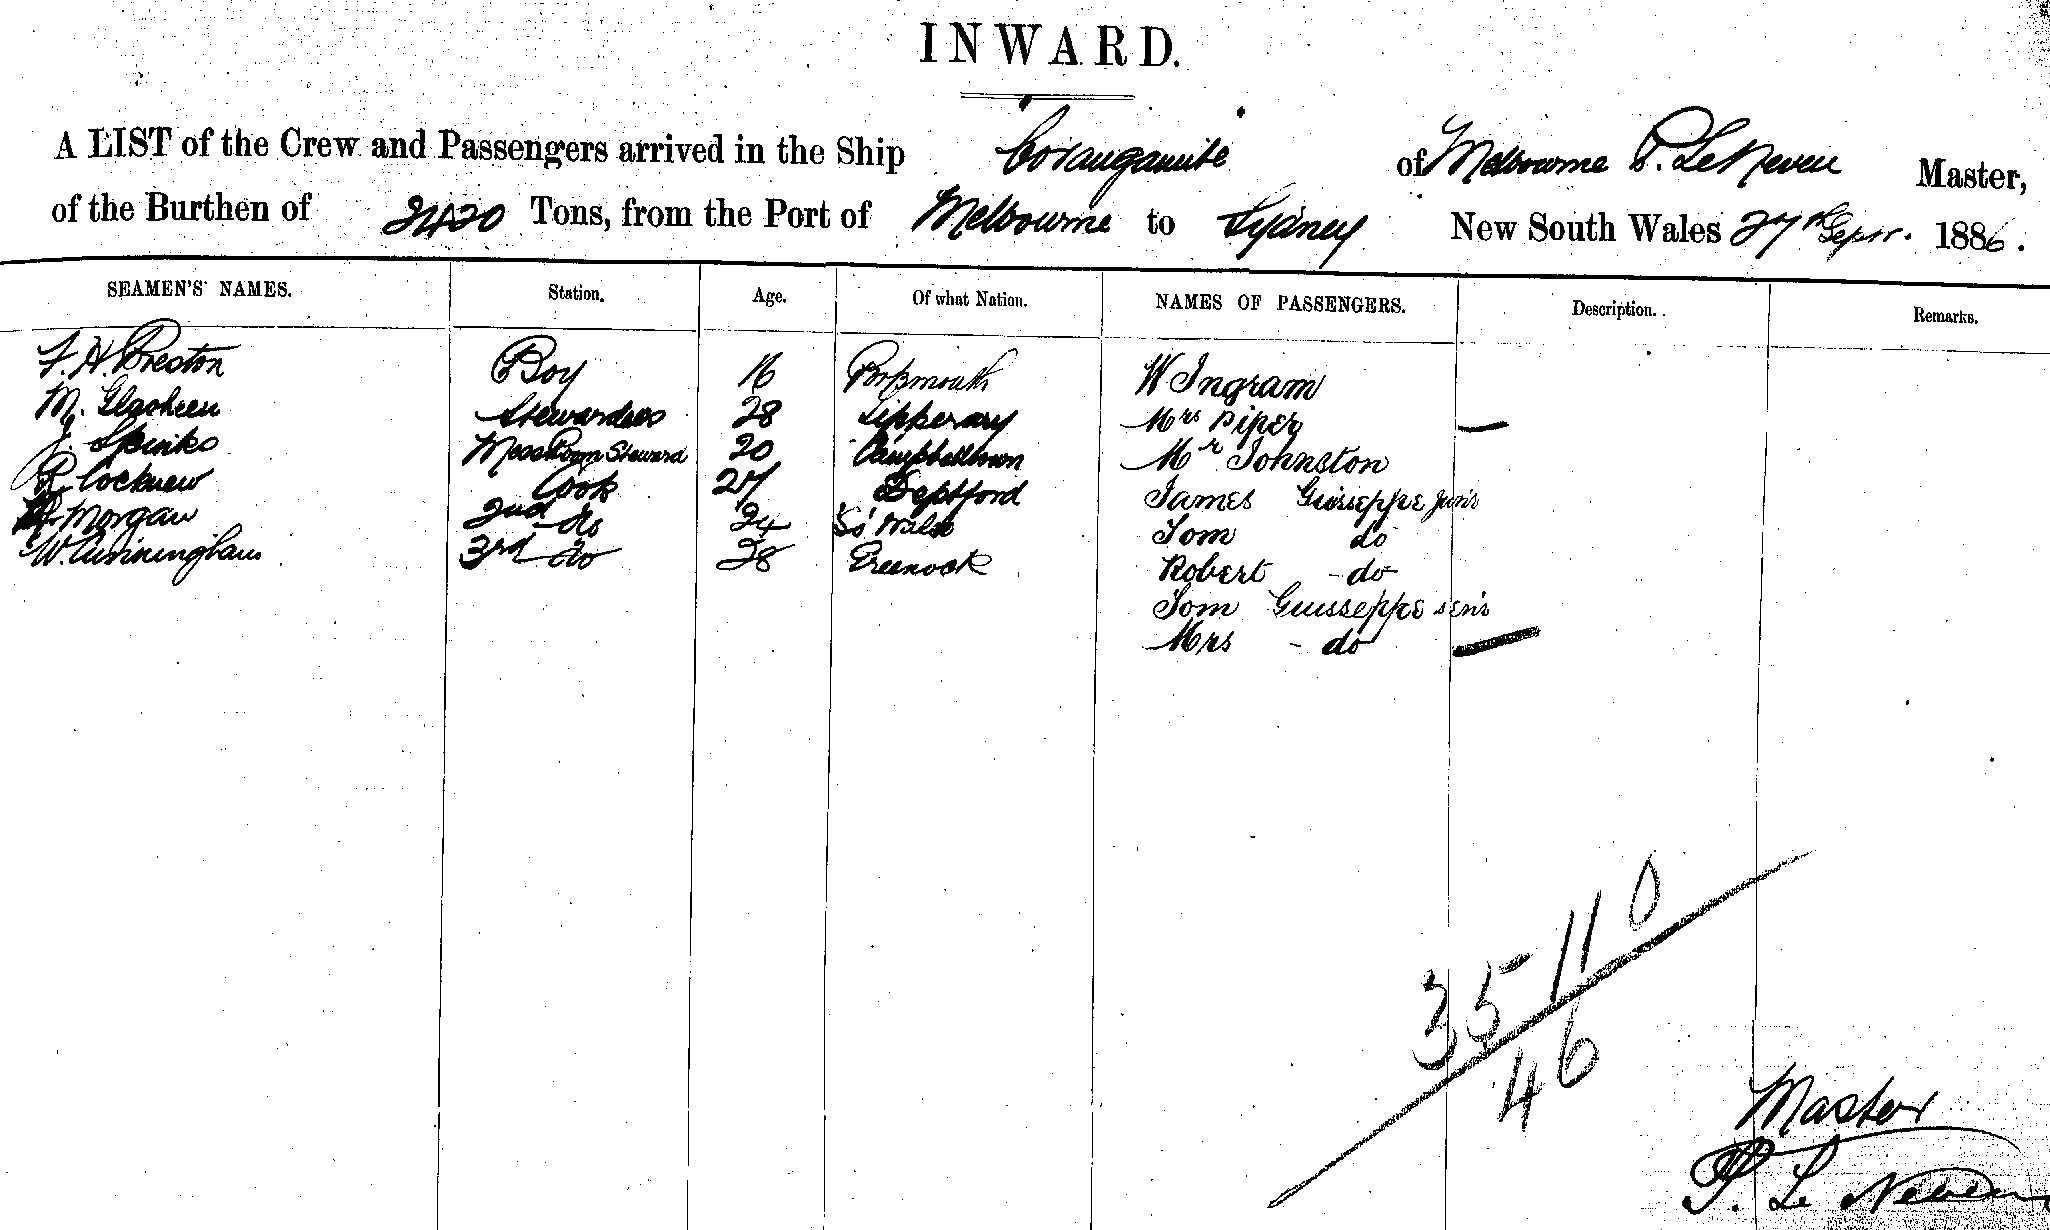 INWARD.
A LIST of the Crew and Passengers arrived in the Ship Corangamite of Melbourne P. Le Neveu Master,
of the Burthen of 2420 Tons, from the Port of Melbourne to Sydney New South Wales 27th Sepr. 1886.
SEAMEN'S NAMES. Station. Age. Of what Nation. NAMES OF PASSENGERS. Description. Remarks.
F. H. Preston Boy 16 Portsmouth W Ingram
M. Stewardess 28 Tipperary Mrs Piper —
J. Spinks Mess Room Steward 20 Campbelltown Mr Johnston
R. Cocknew Cook 27 Deptford James Guisseppe junr
Morgan 2nd do 24 So Wales Tom do
W. Cunningham 3rd do 28 Greenock Robert - do
Tom Guisseppe senr
Mrs - do —
35 11 0
46
Master
P. Le Neveu